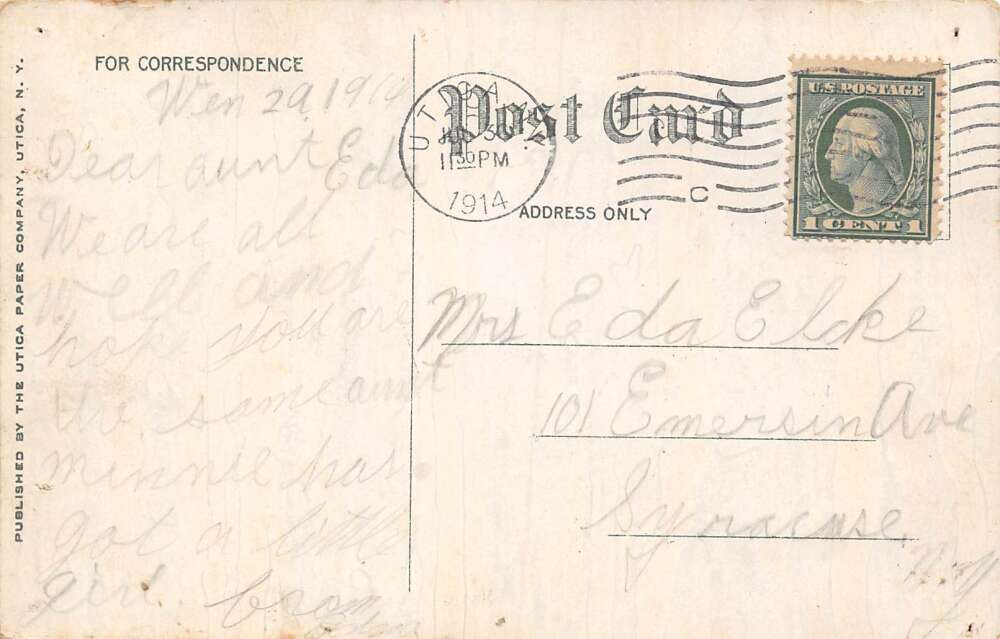 PUBLISHED BY THE UTICA PAPER COMPANY, UTICA, N. Y.
FOR CORRESPONDENCE
Wen 29 1914
Dear aunt Eda
We are all
Well and
hope you are
the same aunt
minnie has
got a little
girl. from
Post Card
UTICA
11 30 PM
1914
C
ADDRESS ONLY
U.S. POSTAGE
1 CENT 1
Mrs Eda Elcke
101 Emersin Ave
Syracuse
N.Y